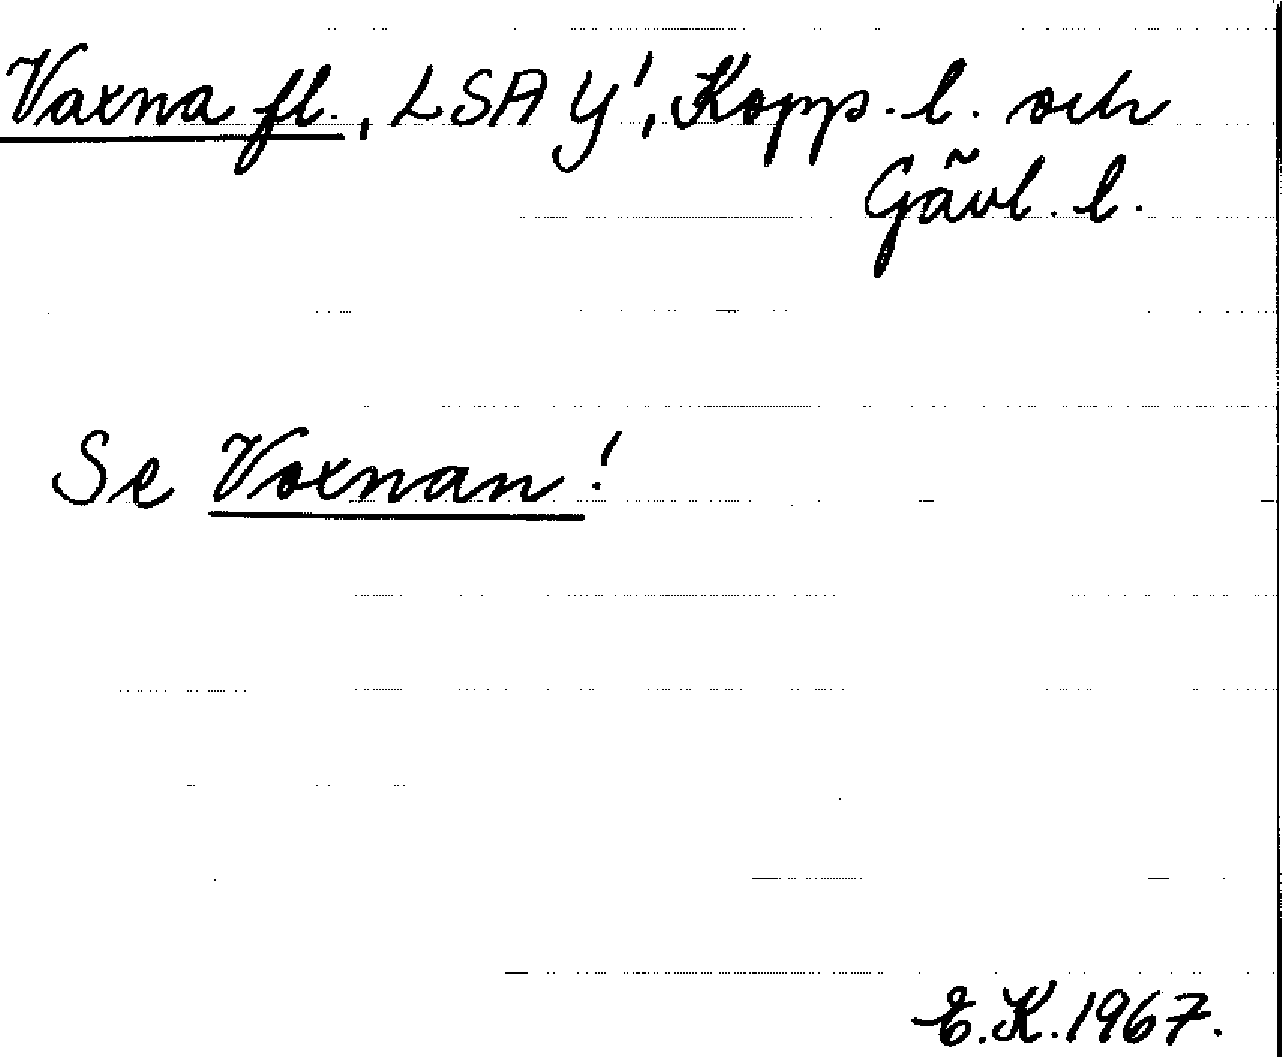 Vaxna fl., LSA Y', Kopp. l. och
Gävl. l.
Se Voxnan!
E.K. 1967.